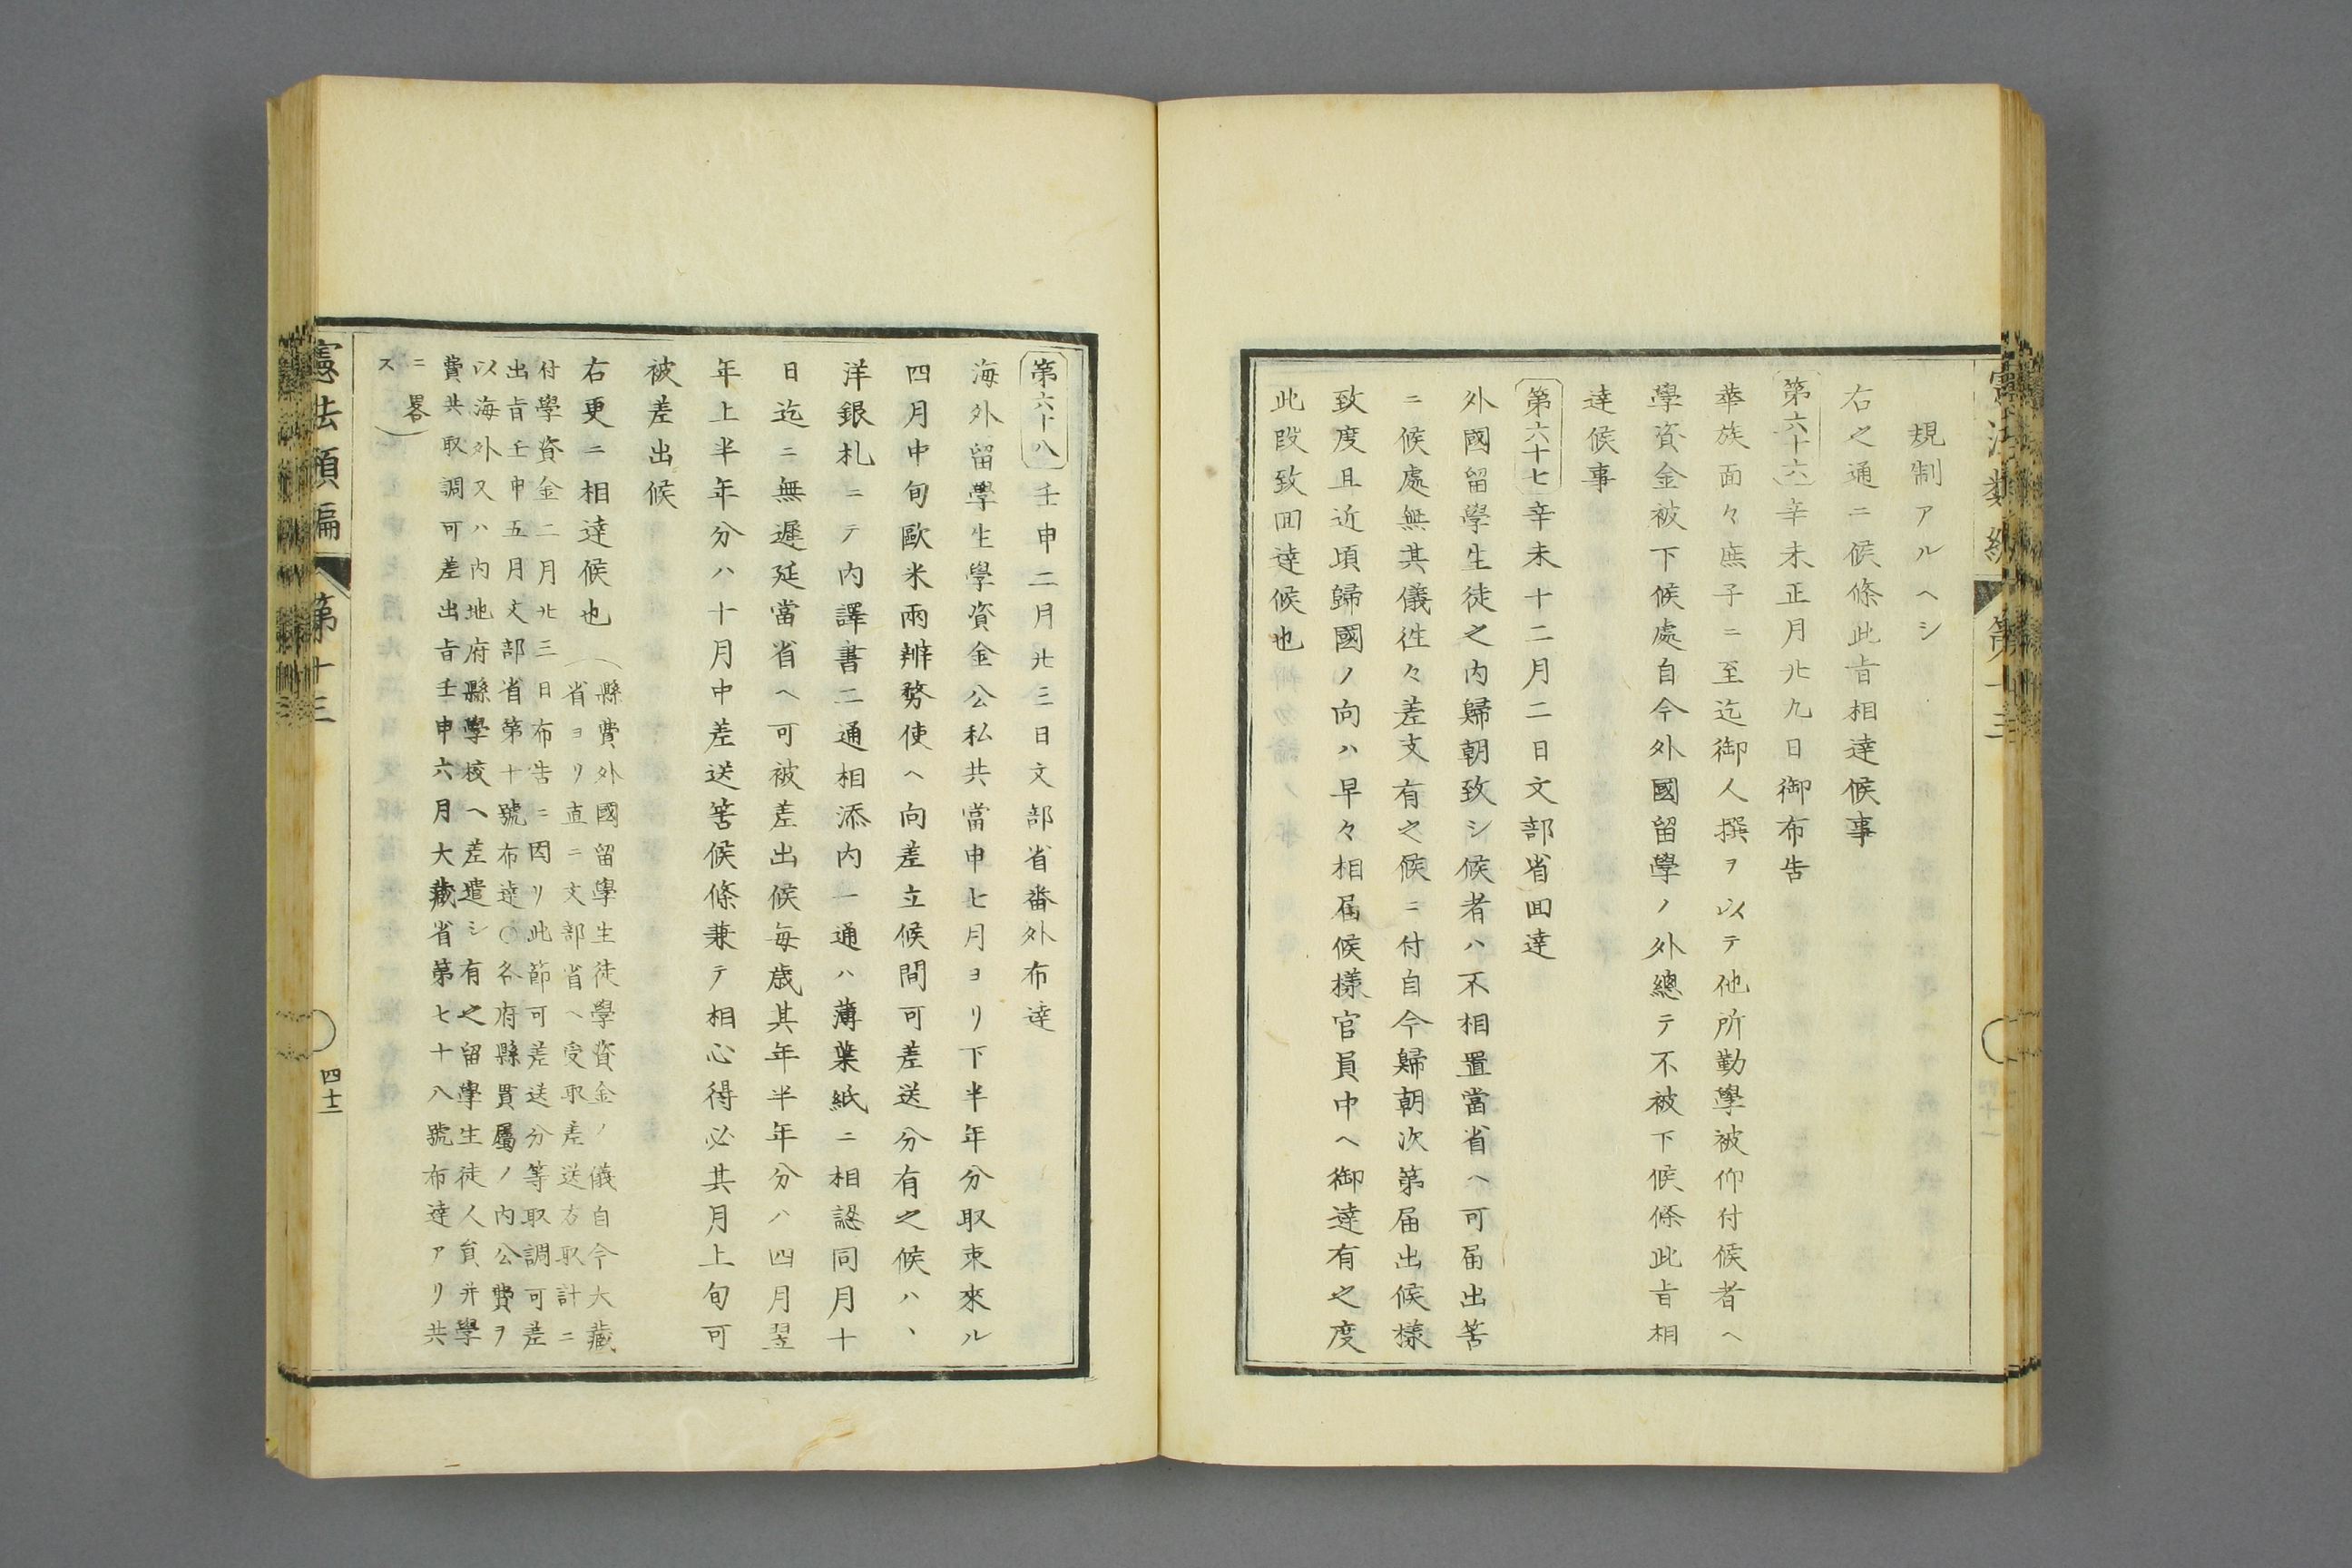 規制アルヘシ
右之通ニ候條此旨相達候事
第六十六 辛未正月廿九日御布告
華族面々庶子ニ至迄御人撰ヲ以テ他所勤學被仰付候者ヘ
學資金被下候處自今外國留學ノ外總テ不被下候條此旨相
達候事
第六十七 辛未十二月二日文部省回達
外國留學生徒之内歸朝致シ候者ハ不相置當省ヘ可届出筈
ニ候處無其儀徃々差支有之候ニ付自今歸朝次第届出候樣
致度且近頃歸國ノ向ハ早々相届候樣官員中ヘ御達有之度
此段致回達候也
第六十八 壬申二月廿三日文部省番外布達
海外留學生學資金公私共當申七月ヨリ下半年分取束來ル
四月中旬歐米兩辨務使ヘ向差立候間可差送分有之候ハヽ
洋銀札ニテ内譯書二通相添内一通ハ薄葉紙ニ相認同月十
日迄ニ無遲延當省ヘ可被差出候毎歳其年半年分ハ四月翌
年上半年分ハ十月中差送筈候條兼テ相心得必其月上旬可
被差出候
右更ニ相達候也
(縣費外國留學生徒學資金ノ儀自今大藏
省ヨリ直ニ文部省ヘ受取差送方取計ニ
付學資金二月廿三日布告ニ因リ此節可差送分等取調可差
出旨壬申五月文部省第十號布達○各府縣貫屬ノ内公費ヲ
以海外又ハ内地府縣學校ヘ差遣シ有之留學生徒人員并學
費共取調可差出旨壬申六月大藏省第七十八號布達アリ共
ニ畧)
ス
憲法類編 第十三
四十二